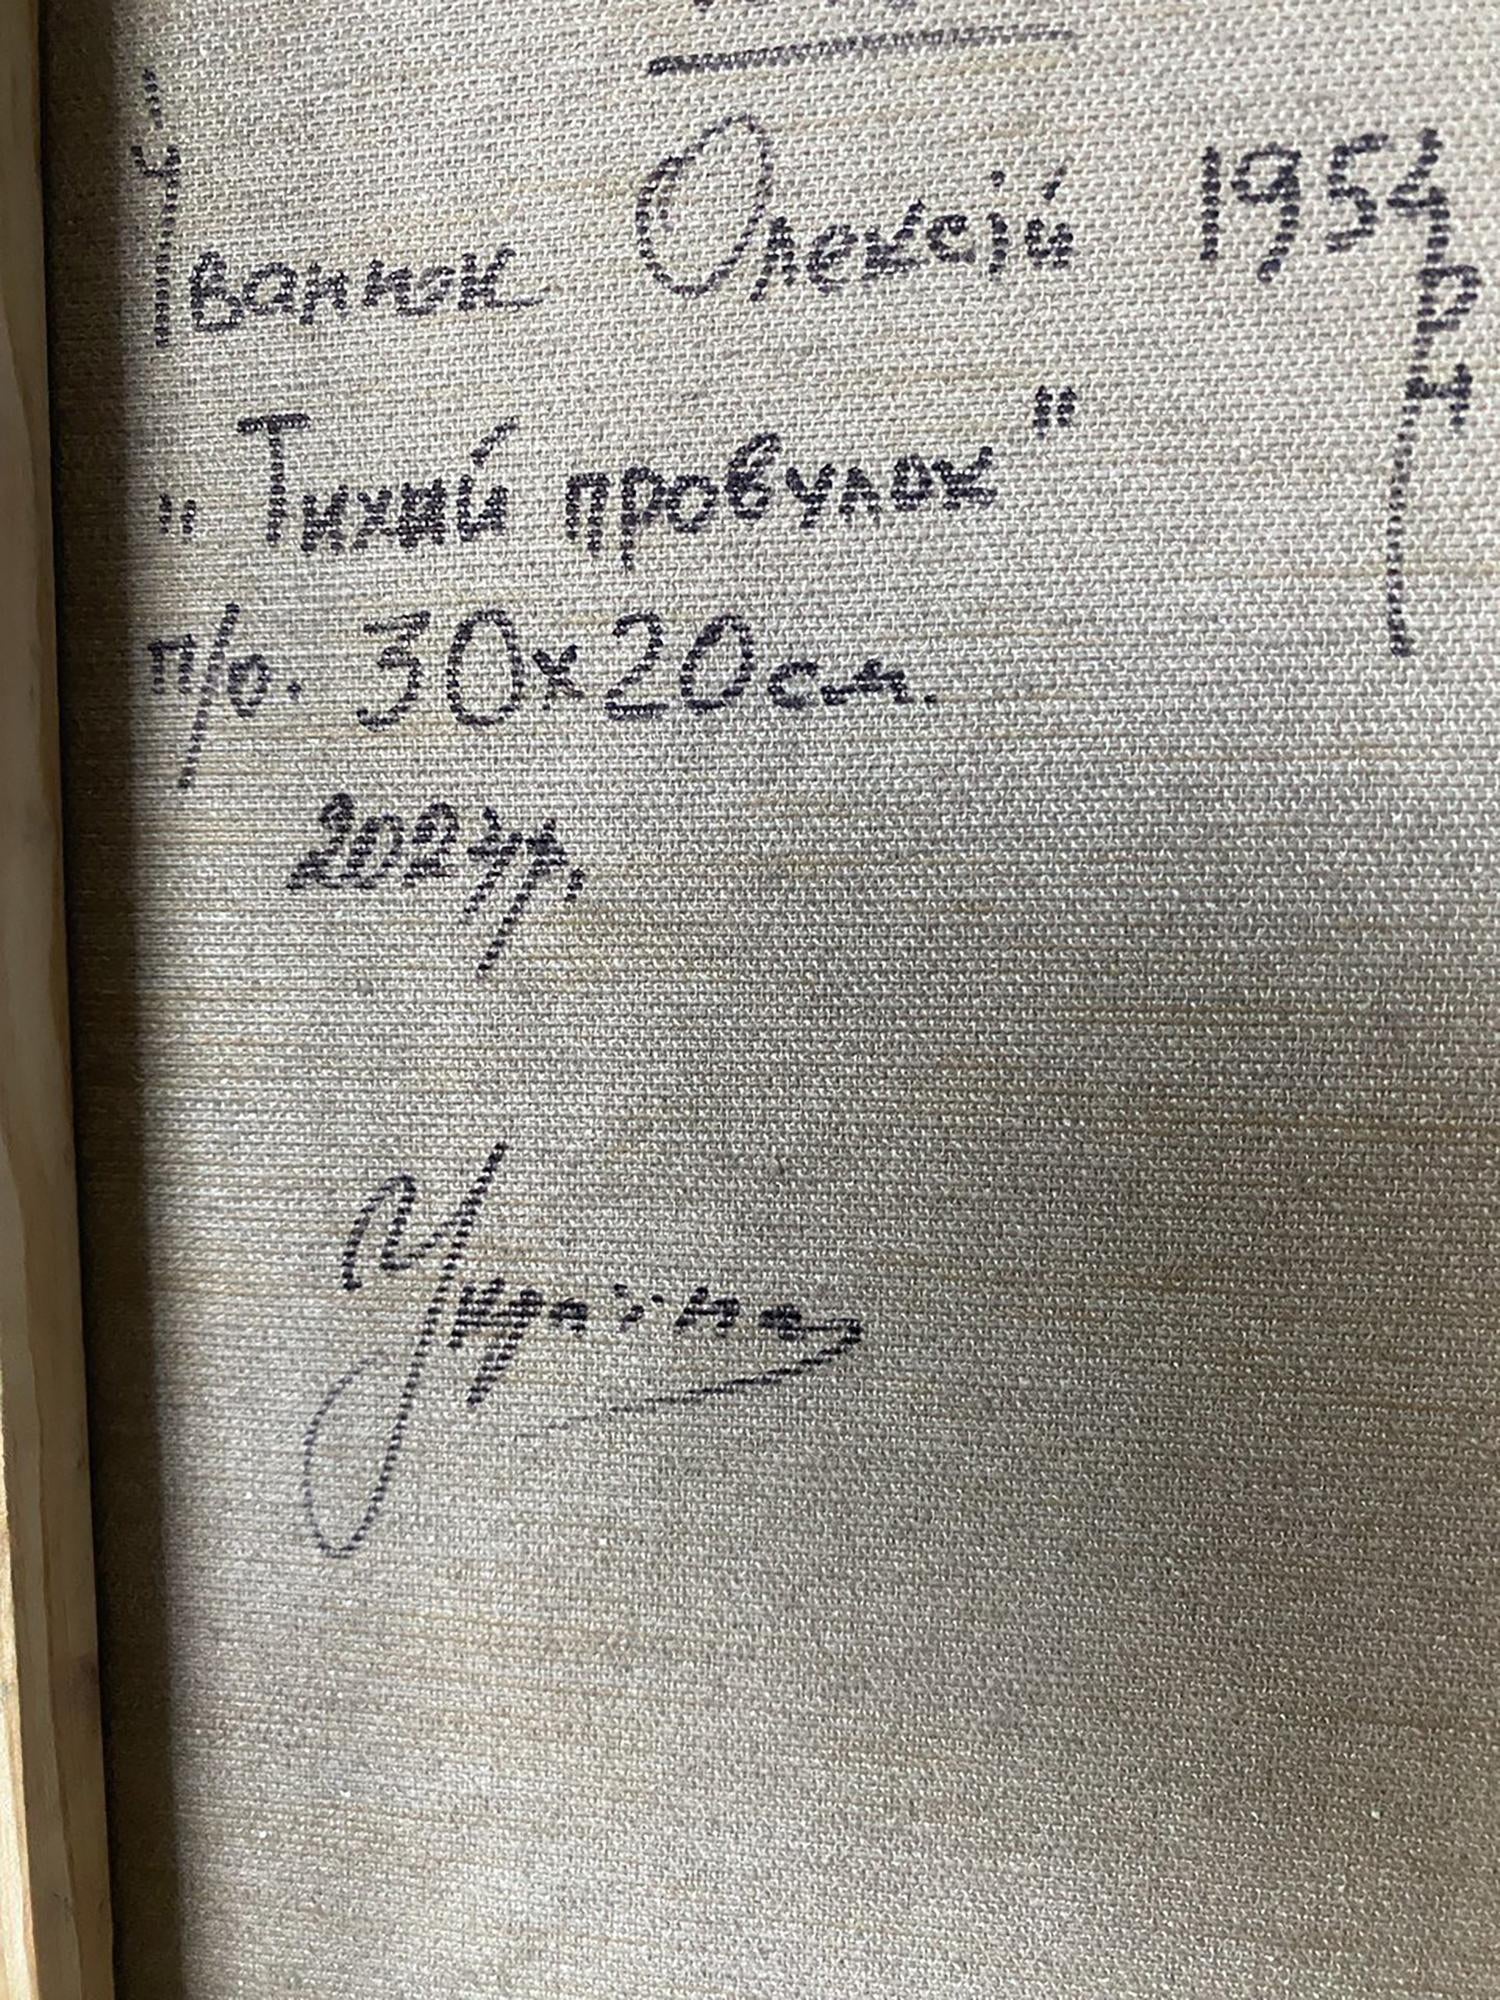 Іванюк Олексій 1954 р.н.
"Тихий провулок"
п/о. 30х20см.
2024р.
Україна